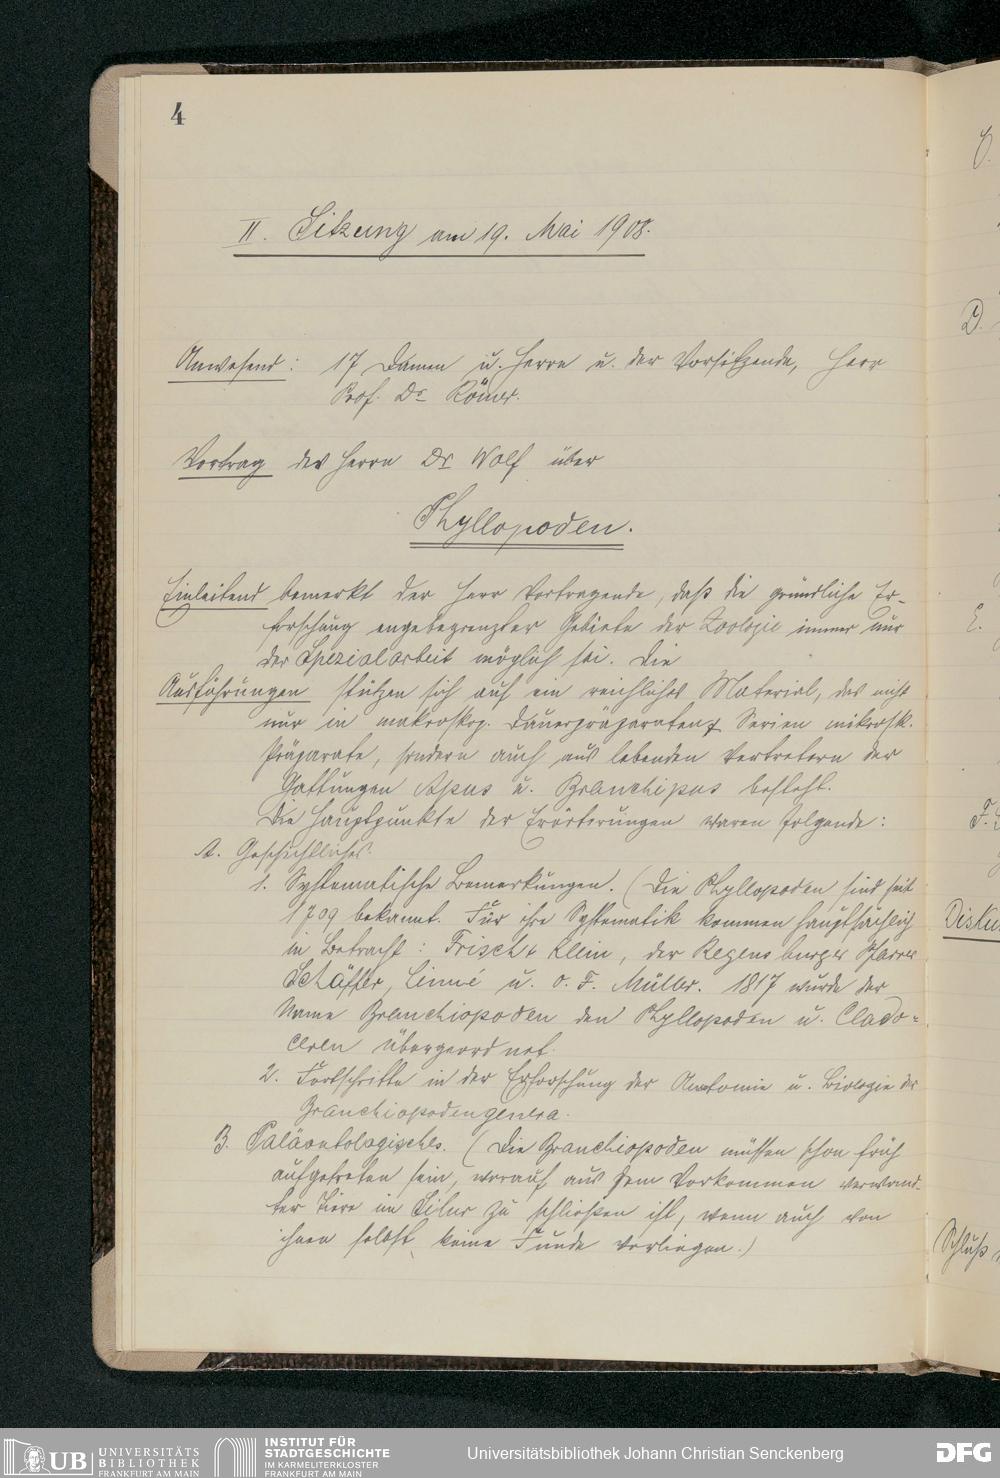 4
II. Sitzung am 19. Mai 1908.
Anwesend: 17 Damen u. Herren u. der Vorsitzende, Herr
Prof. Dr Römer.
Vortrag des Herrn Dr Wolf über
Phyllopoden.
Einleitend bemerkt der Herr Vortragende, daß die gründliche Er-
forschung engbegrenzter Gebiete der Zoologie immer nur
der Spezialarbeit möglich sei. Die
Ausführungen stützen sich auf ein reichliches Material, das nicht
nur in makroskop. Dauerpräparaten & Serien mikrosk.
Präparate, sondern auch aus lebenden Vertretern der
Gattungen Apus u. Branchipus besteht.
Die Hauptpunkte der Erörterungen waren folgende:
A. Geschichtliches.
1. Systematische Bemerkungen. (Die Phyllopoden sind seit
1709 bekannt. Für ihre Systematik kommen hauptsächlich
in Betracht: Frisch & Klein, der Regensburger Pfarrer
Schäffer, Linné u. O. F. Müller. 1817 wurde der
Name Branchiopoden den Phyllopoden u. Clado-
ceren übergeordnet.
2. Fortschritte in der Erforschung der Anatomie u. Biologie der
Branchiopodengenera.
B. Paläontologisches. (Die Branchiopoden müssen schon früh
aufgetreten sein, worauf aus dem Vorkommen verwand-
ter Tiere im Silur zu schließen ist, wenn auch von
ihnen selbst keine Funde vorliegen.)
C.
D.
E.
F.
Disku
Schluß
UB UNIVERSITÄTS
BIBLIOTHEK
FRANKFURT AM MAIN
INSTITUT FÜR
STADTGESCHICHTE
IM KARMELITERKLOSTER
FRANKFURT AM MAIN
Universitätsbibliothek Johann Christian Senckenberg
DFG